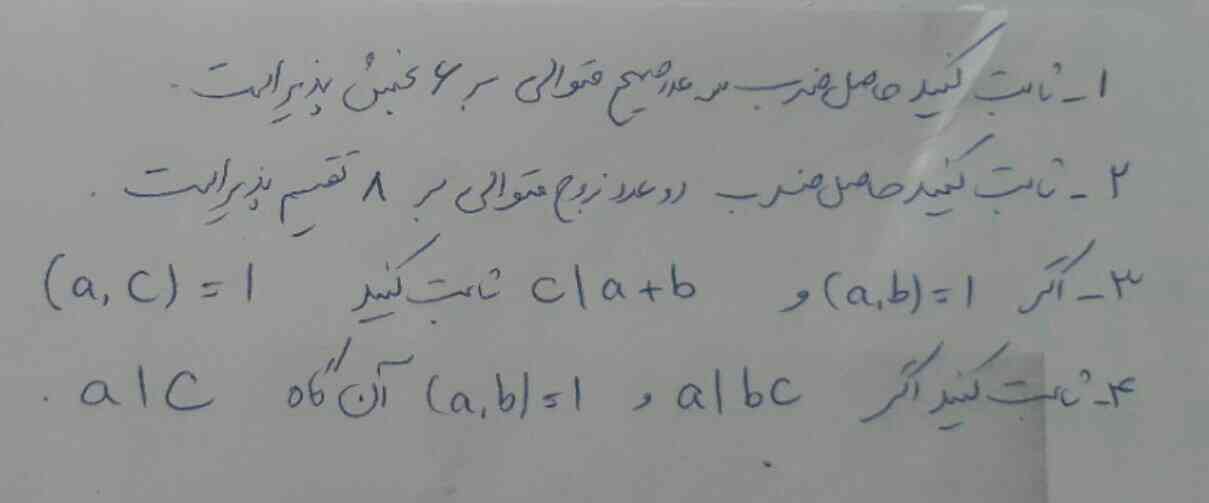 ۱- ثابت کنید حاصل ضرب سه عدد صحیح متوالی بر ۶ بخش پذیر است.
۲- ثابت کنید حاصل ضرب دو عدد زوج متوالی بر ۸ تقسیم پذیر است.
۳- اگر (a,b)=1 و c|a+b ثابت کنید (a,c)=1
۴- ثابت کنید اگر a|bc و (a,b)=1 آن گاه a|c.